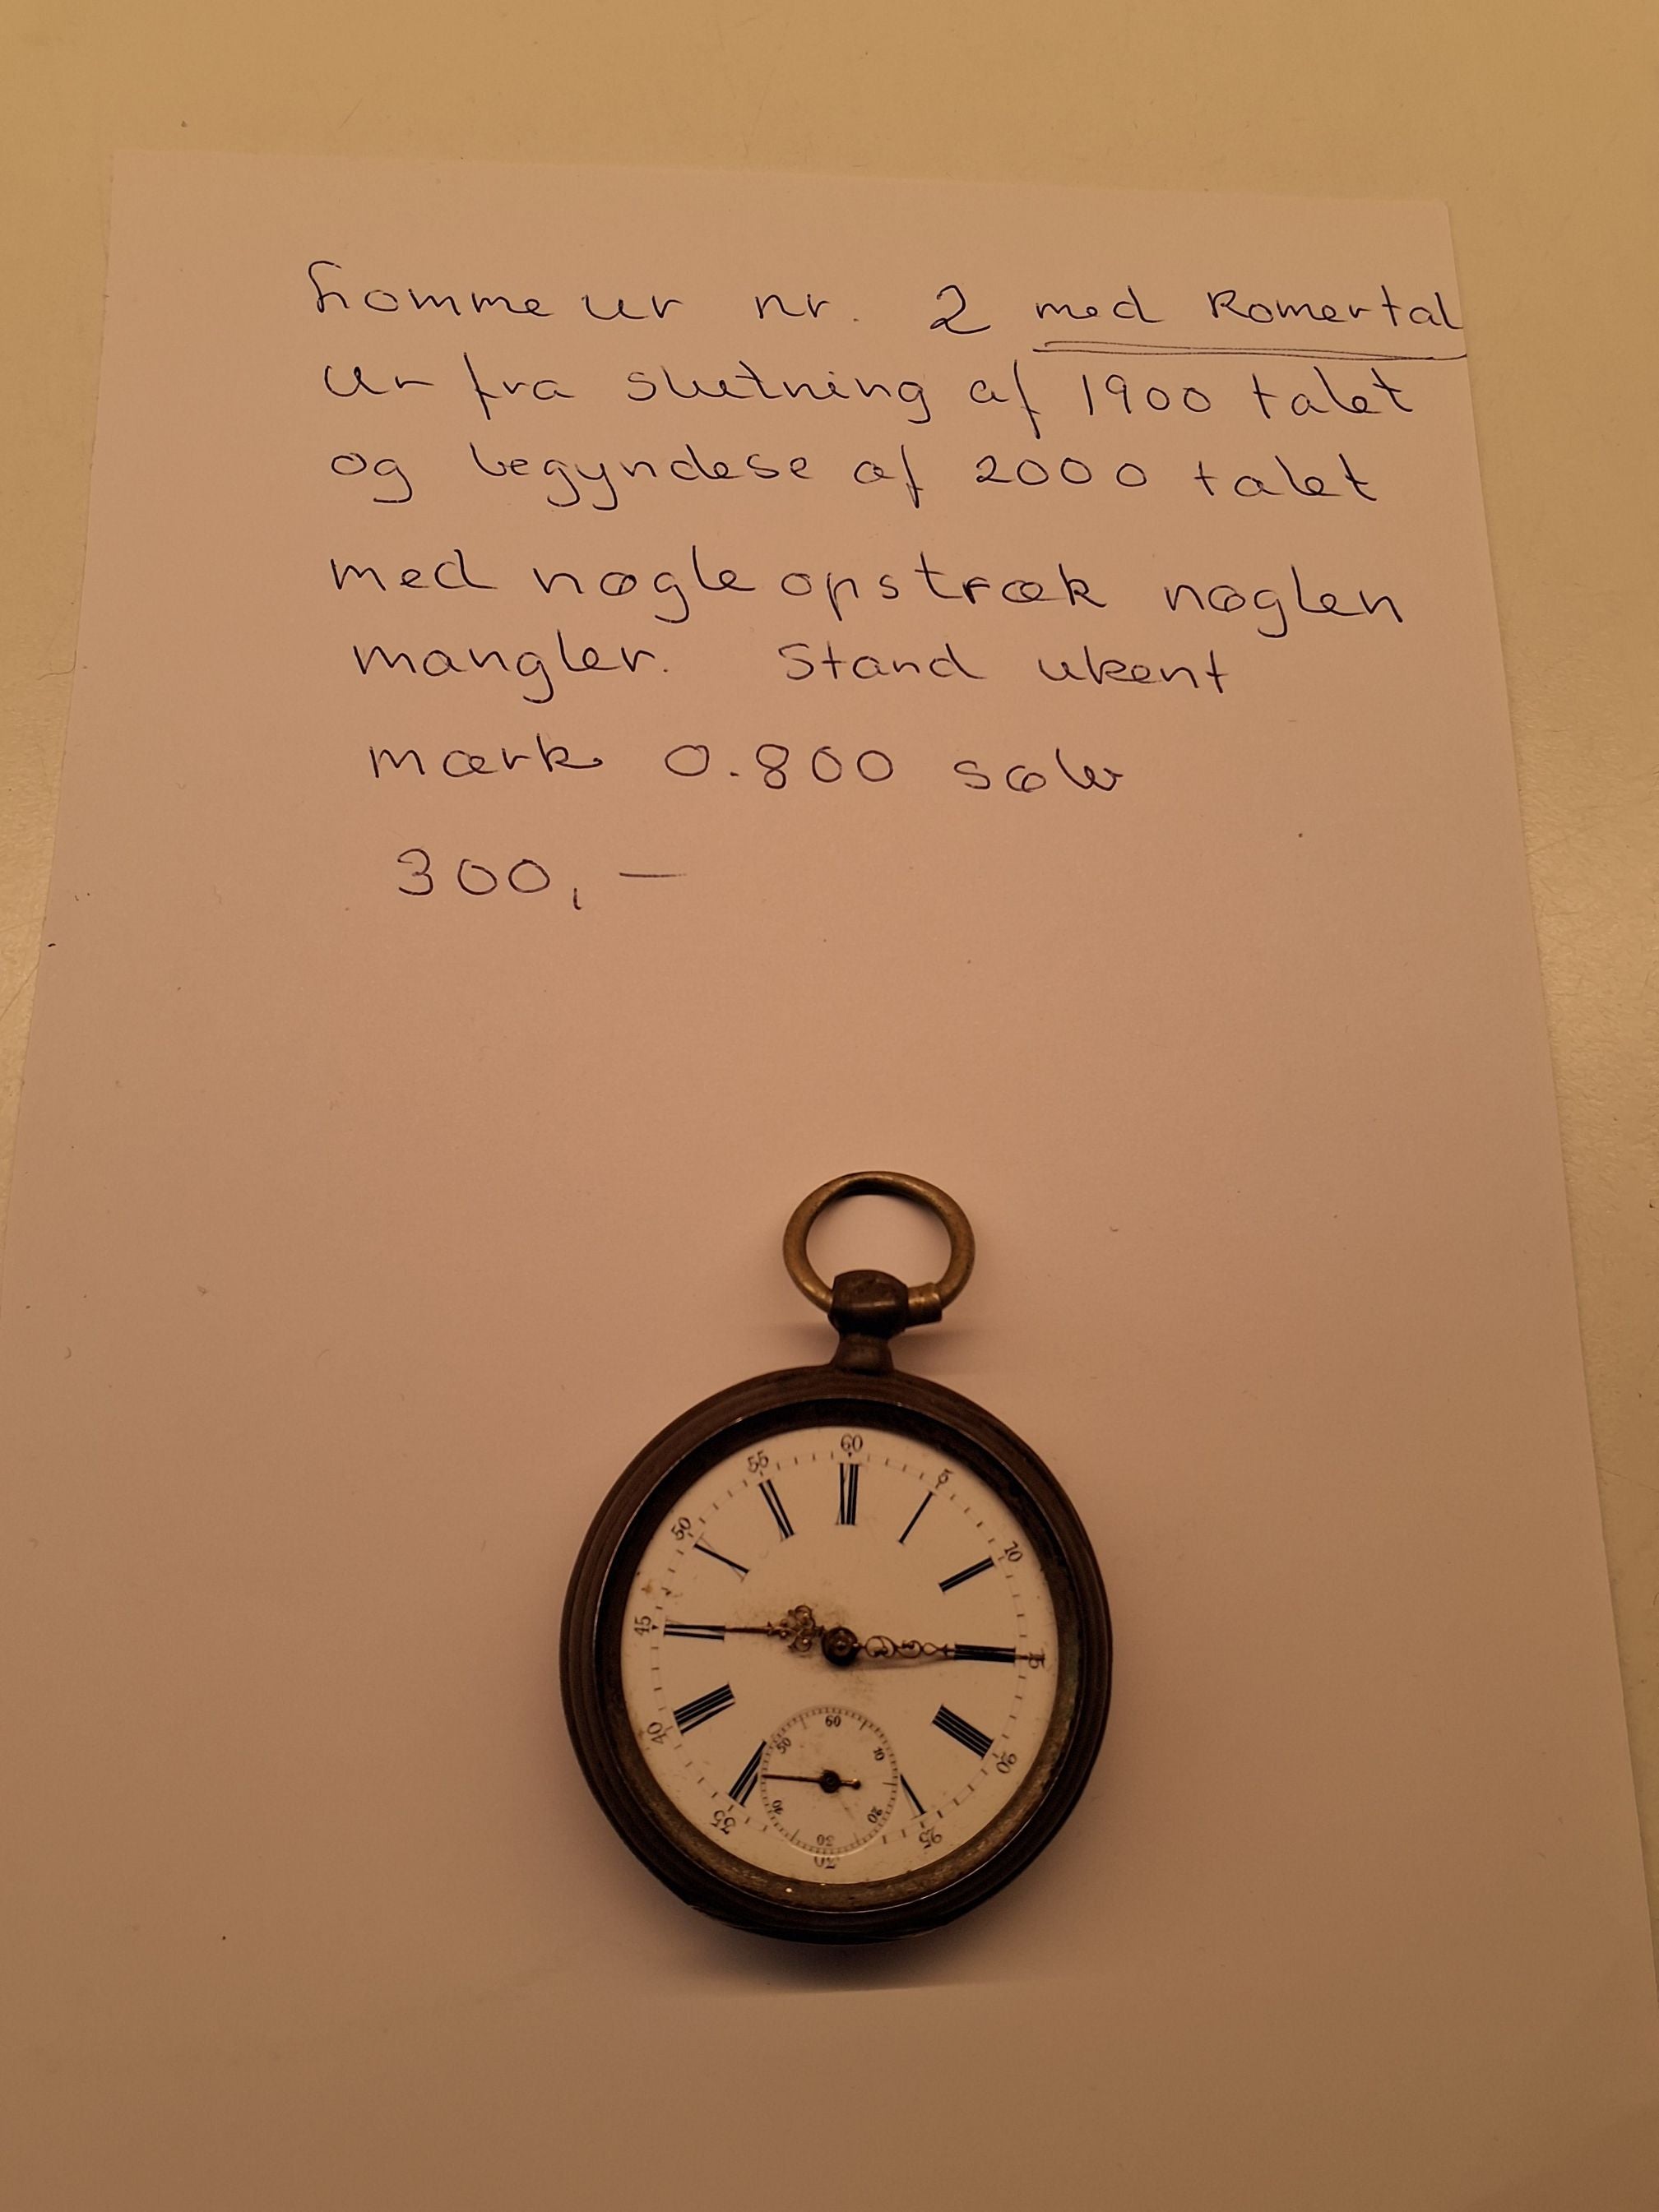 Lommeur nr. 2 med Romertal
Ur fra slutning af 1900 talet
og begyndese af 2000 talet
med nøgleopstræk nøglen
mangler. Stand ukent
mærk 0.800 sølv
300,—
60
5
10
15
20
25
30
35
40
45
50
55
60
10
20
30
40
50